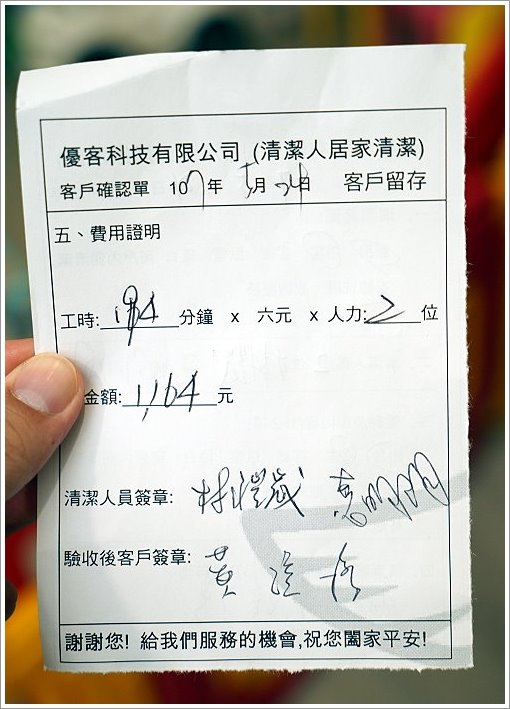 優客科技有限公司 (清潔人居家清潔)
客戶確認單 107年 5月 24日 客戶留存
五、費用證明
工時: 分鐘 x 六元 x 人力: 2 位
金額: 1,164 元
清潔人員簽章:
驗收後客戶簽章: 黃
謝謝您! 給我們服務的機會,祝您闔家平安!